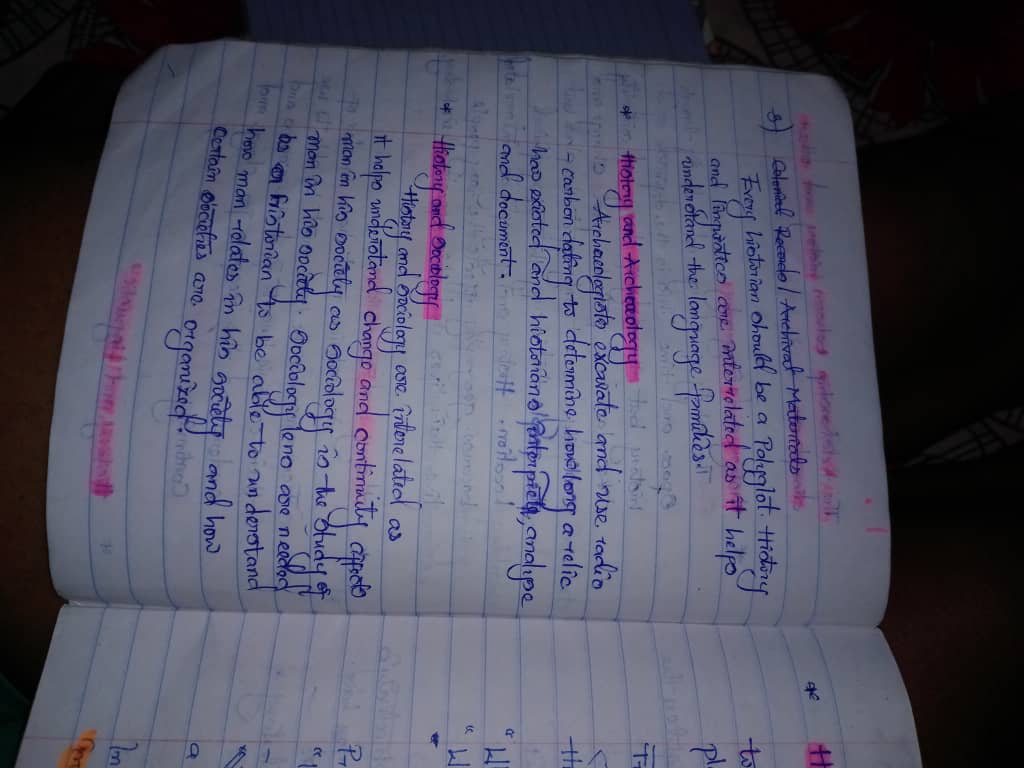 3) Colonial Records / Archival Materials
Every historian should be a Polyglot. History
and linguistics are interrelated as it helps
understand the language families.
* History and Archaeology
Archaeologists excavate and use radio
- carbon dating to determine how long a relic
has existed and historians interprets, analyse
and document.
* History and Sociology
History and Sociology are interelated as
it helps understand change and continuity affects
man in his society as Sociology is the study of
man in his society. Sociology lens are needed
by a historian to be able to understand
how man relates in his society and how
certain societies are organized.
* H
to
pl
"
"
a
In